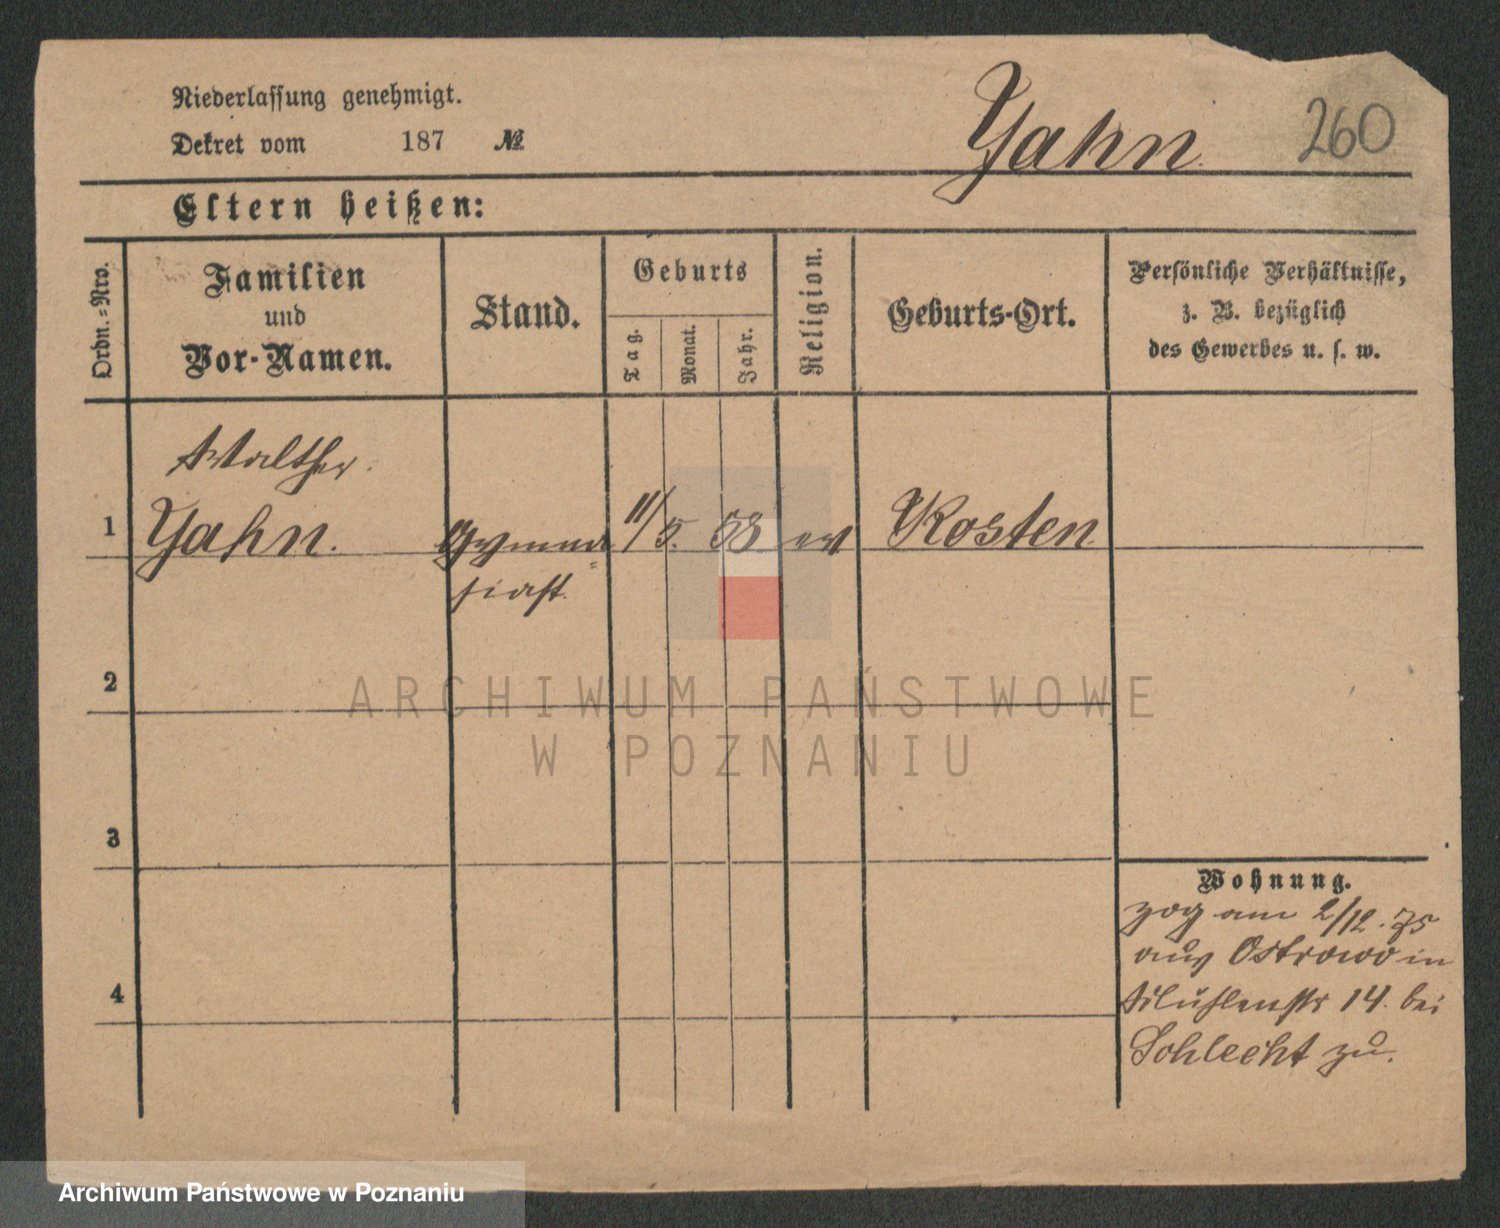 Niederlassung genehmigt.
Dekret vom 187 №
Jahn
260
Eltern heißen:
Ordn.-Nro.
Familien
und
Vor-Namen.
Stand.
Geburts
Tag.
Monat.
Jahr.
Religion.
Geburts-Ort.
Persönliche Verhältnisse,
z. B. bezüglich
des Gewerbes u. s. w.
Walther
1 Jahn. Gymna= 11/5. 58 ev Kosten
siast.
2
ARCHIWUM PAŃSTWOWE
W POZNANIU
3
Wohnung.
zog am 2/12. 75
aus Ostrowo in
4
Mühlenstr 14. bei
Schlecht zu.
Archiwum Państwowe w Poznaniu